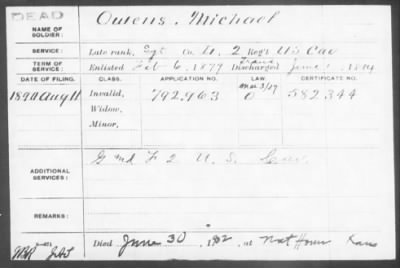 DEAD
NAME OF SOLDIER: Owens, Michael
SERVICE: Late rank, Sgt Co. 2 Reg't U.S. Cav
TERM OF SERVICE: Enlisted Feb 6, 1879 Discharged June 1, 1884
DATE OF FILING. CLASS. APPLICATION NO. LAW. CERTIFICATE NO.
1890 Aug 11 Invalid, 792,963 582,344
Widow,
Minor,
ADDITIONAL SERVICES: F 2 U. S. Cav.
REMARKS:
Died June 30, 1902, at Nat Home Kans